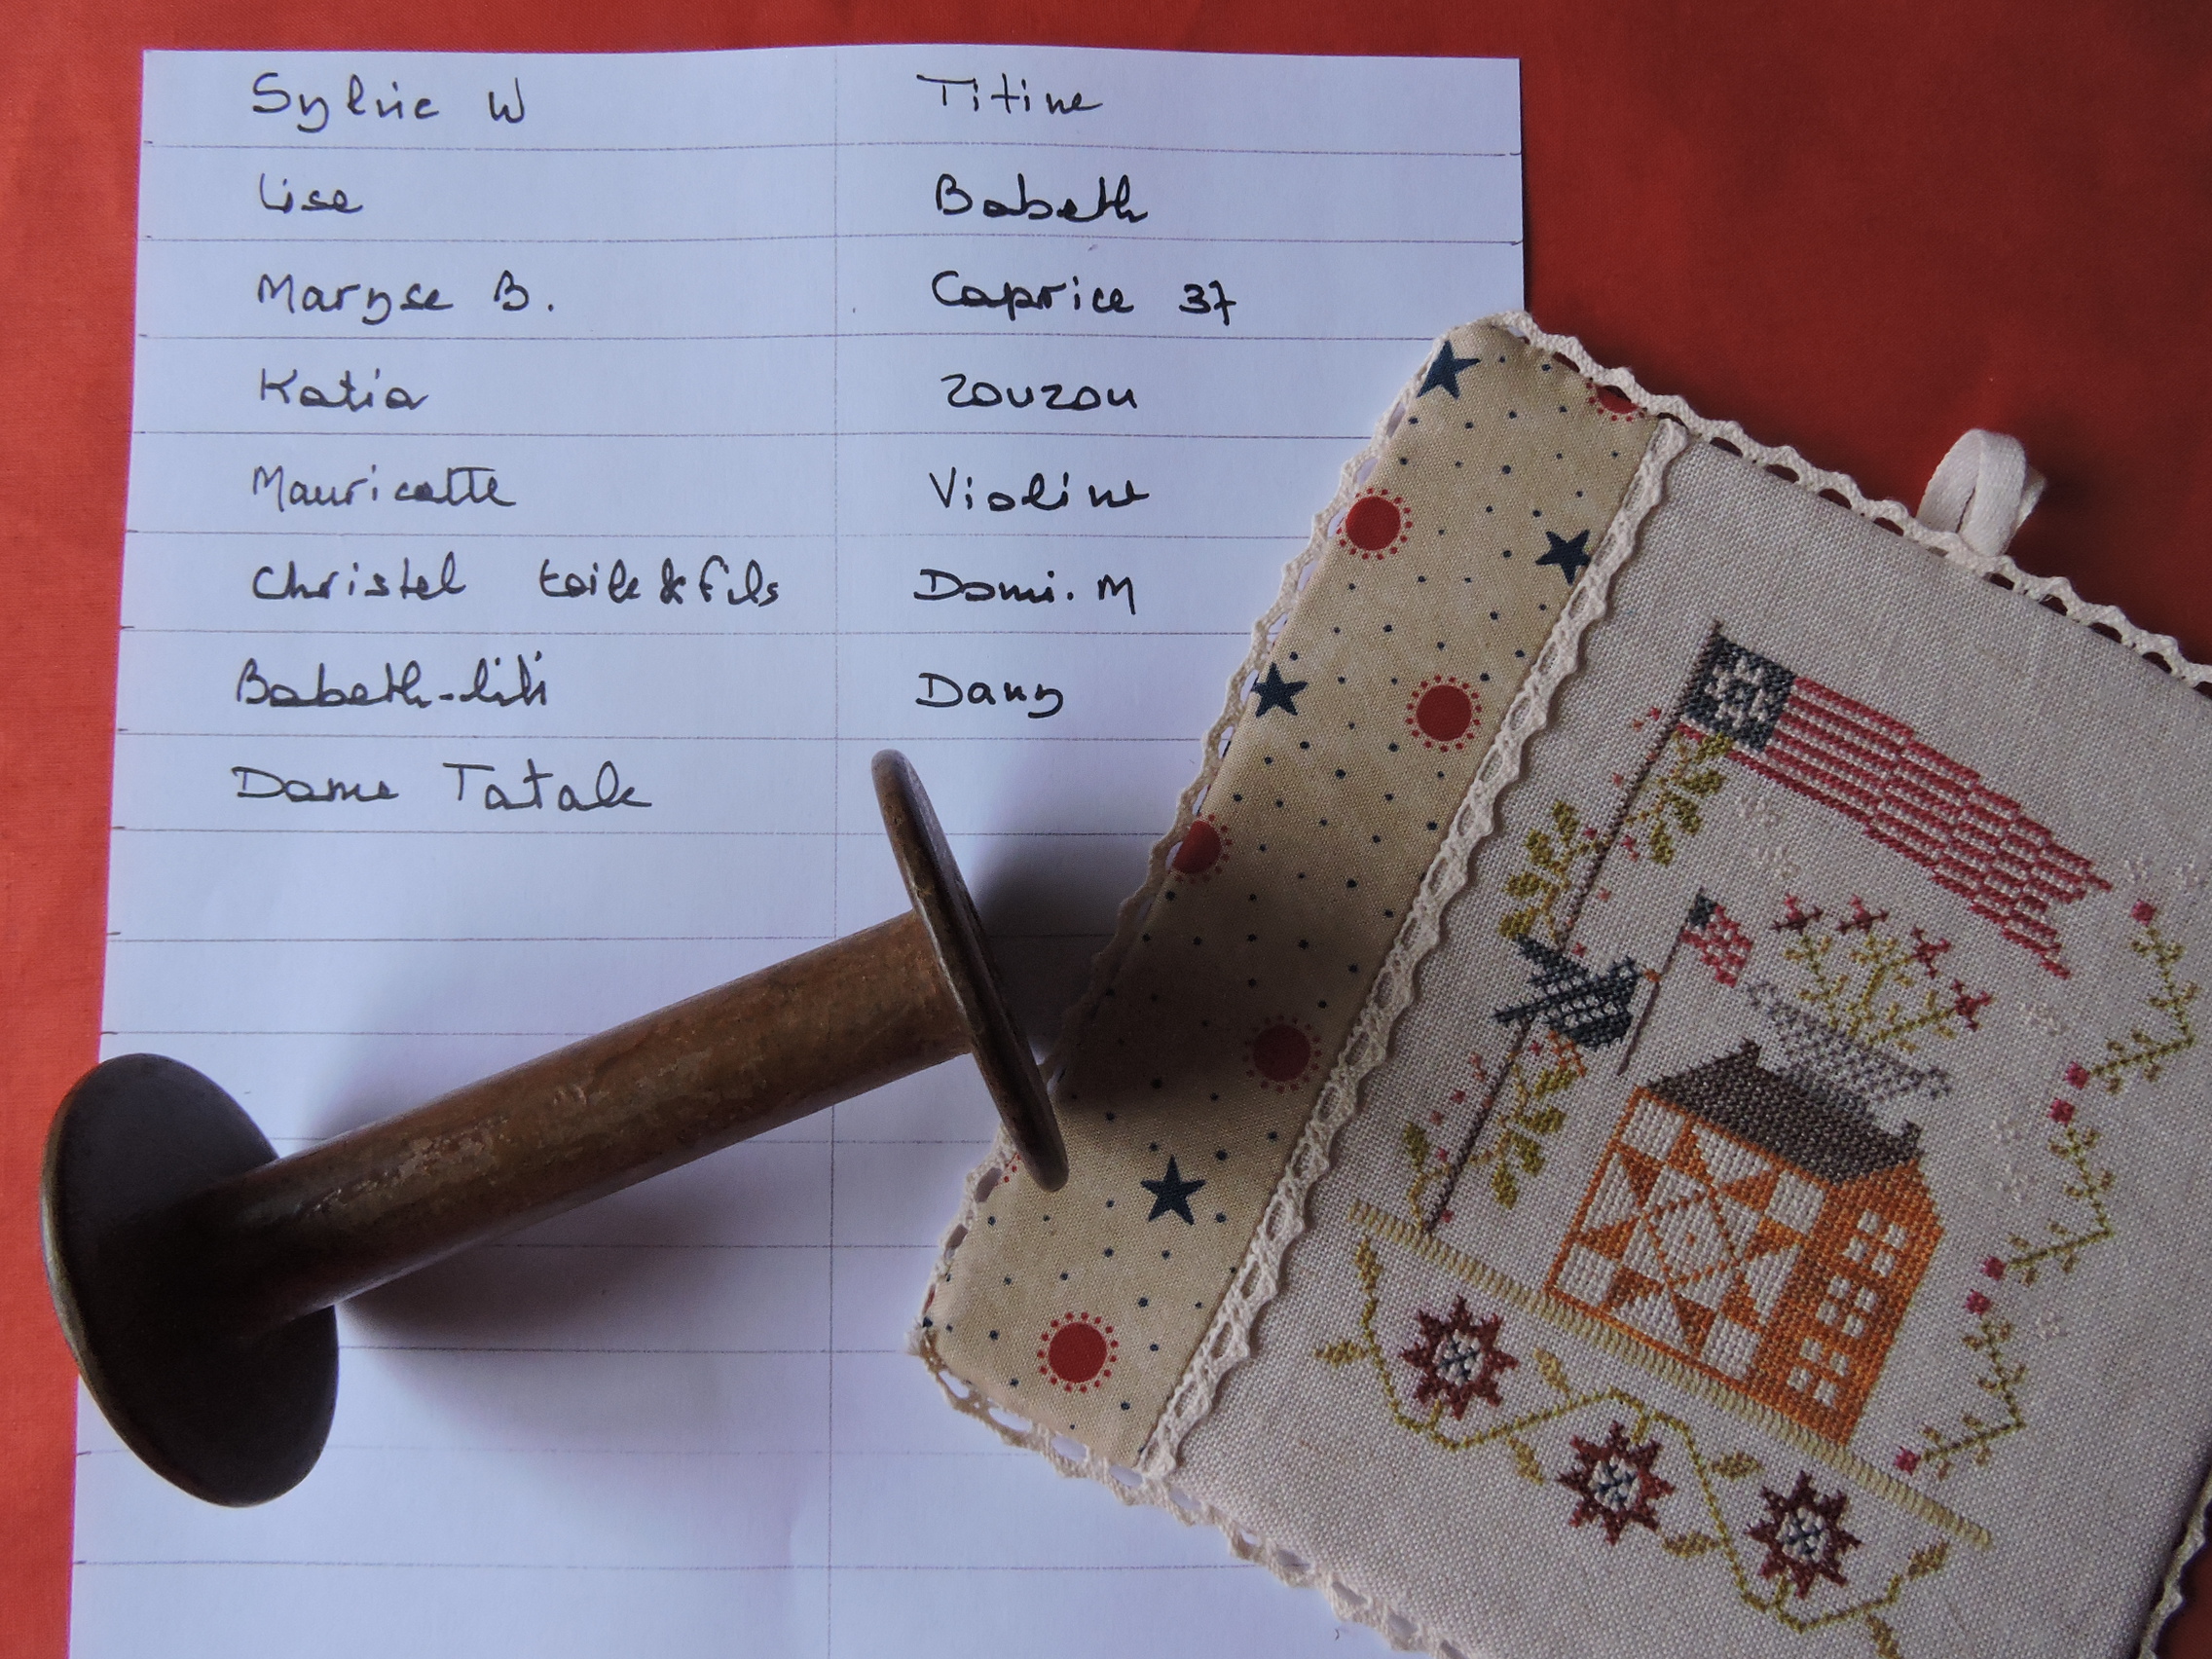 Sylvie W
Lise
Maryse B.
Katia
Mauricette
Christel toile & fils
Babeth-lili
Dame Tatale
Titine
Babeth
Caprice 37
zouzou
Violine
Domi. M
Dany